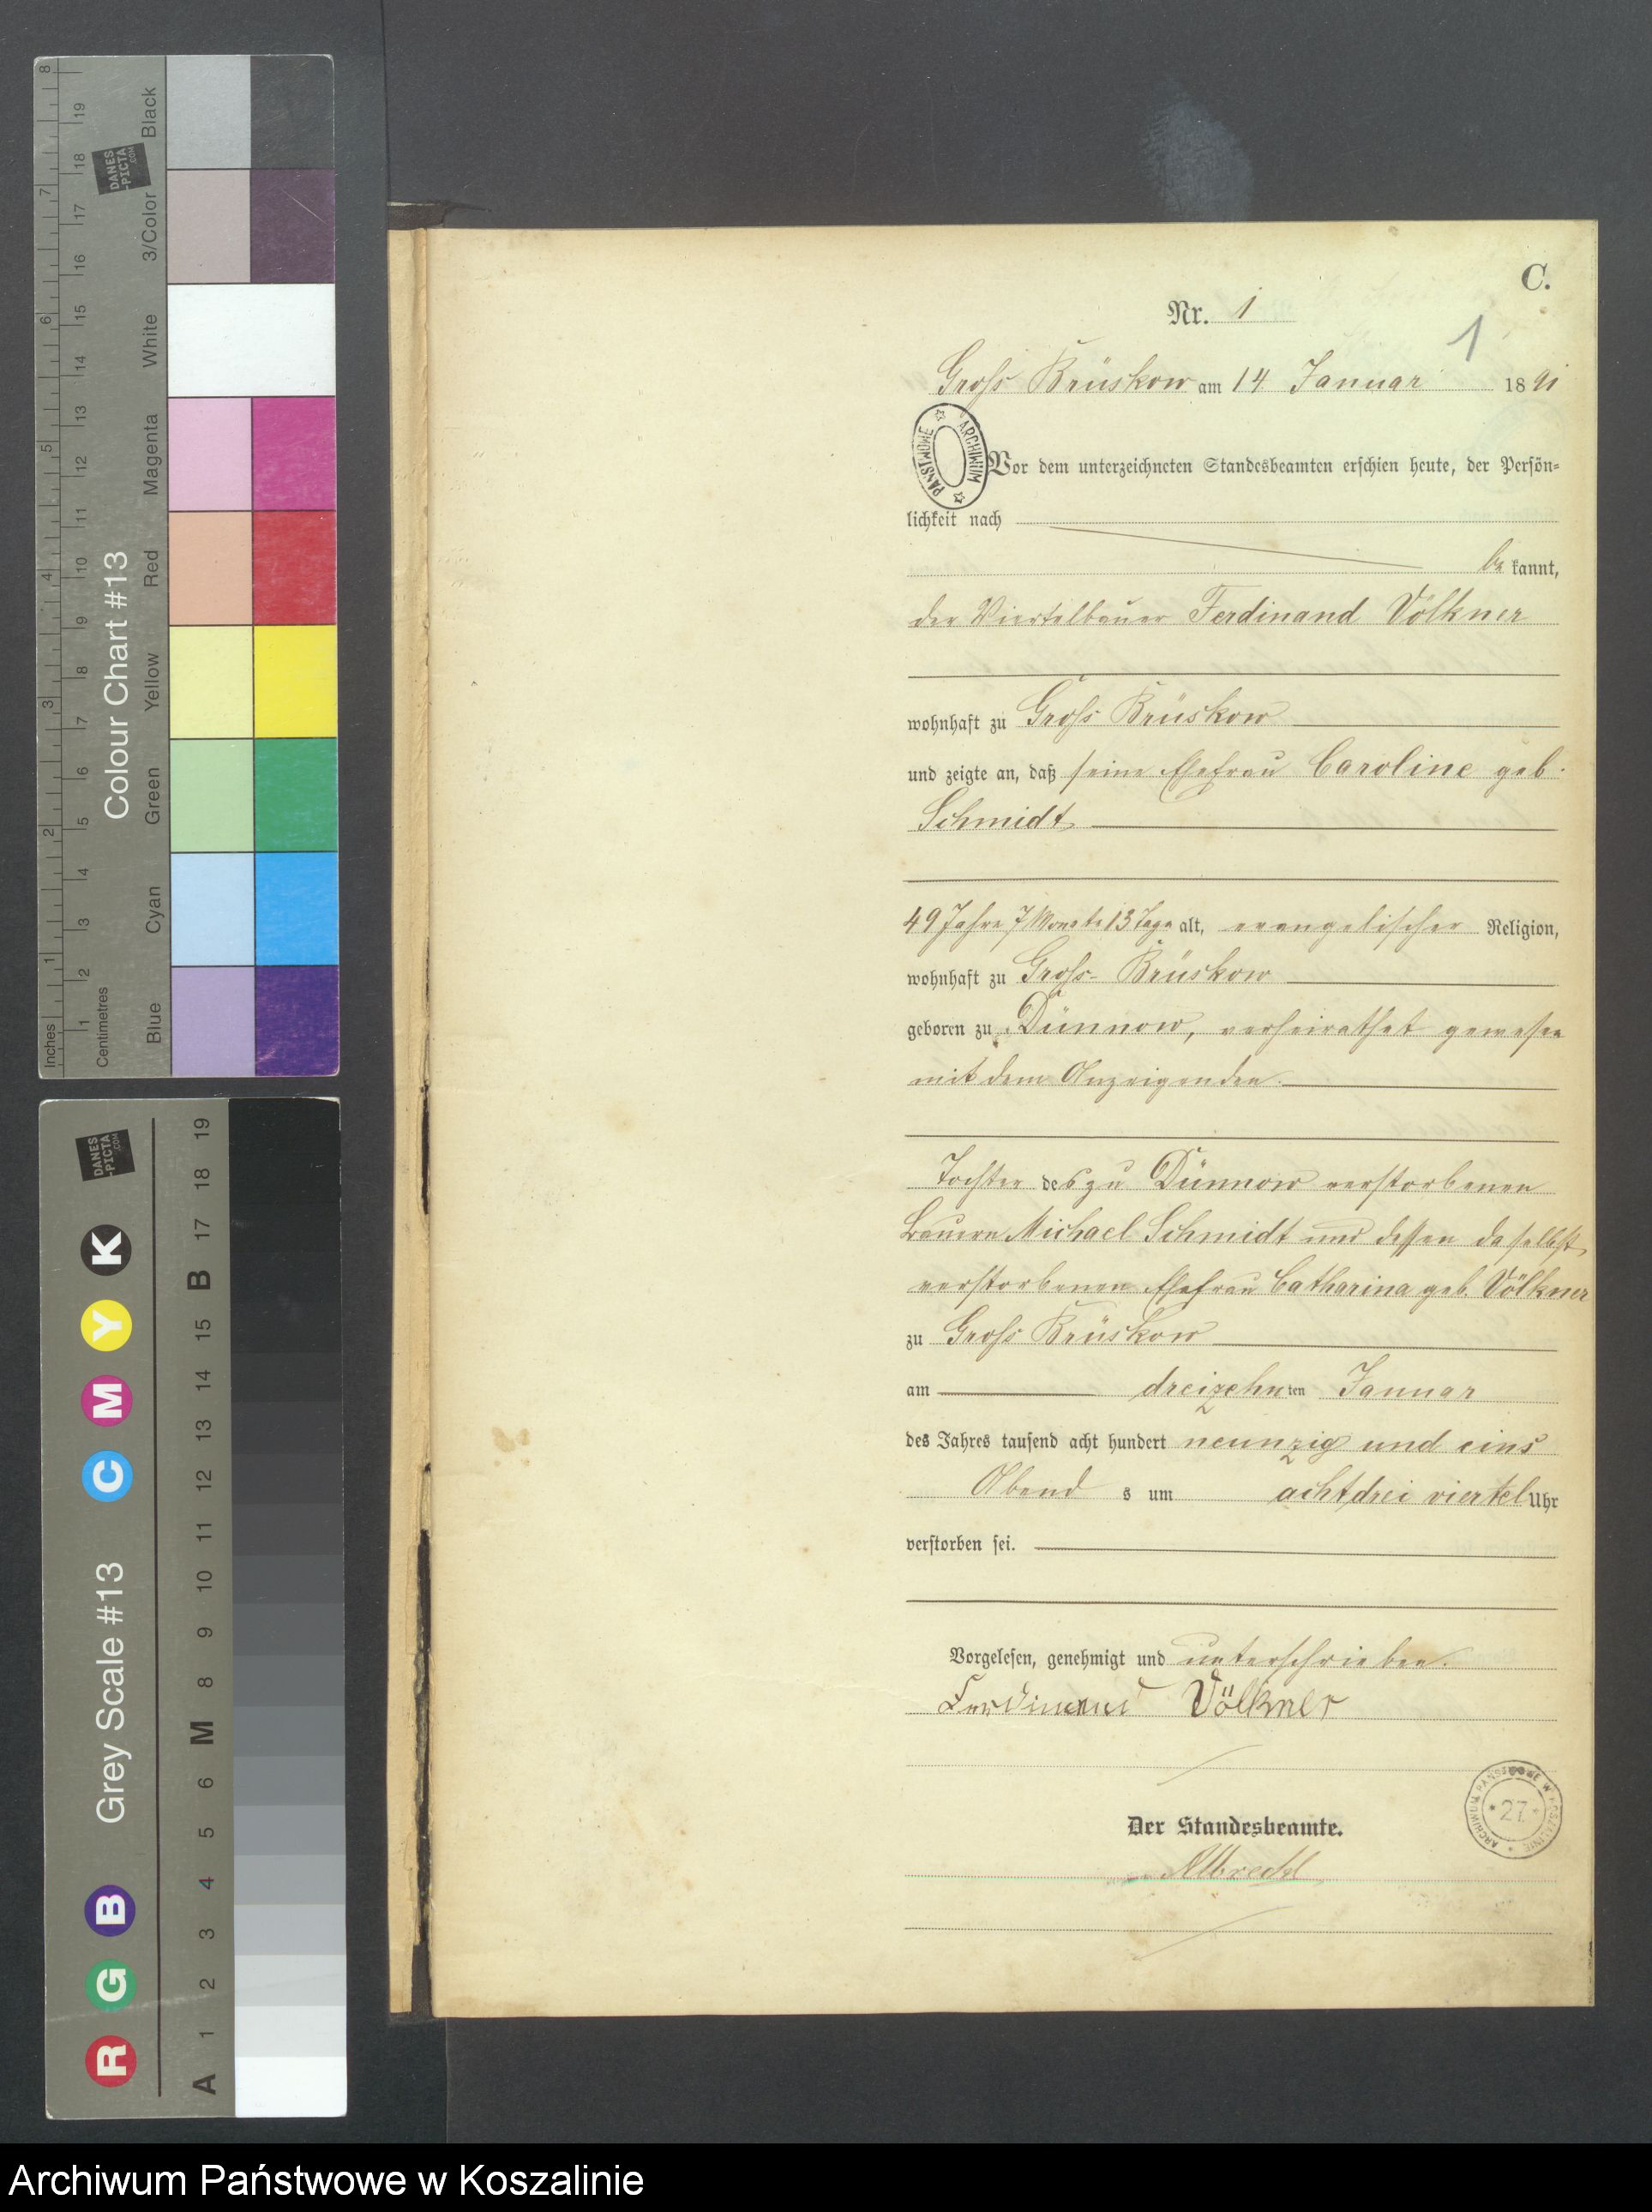 C.
Nr. 1
1
Gross Brüskow am 14 Januar 1891
ARCHIWUM PAŃSTWOWE
Vor dem unterzeichneten Standesbeamten erschien heute, der Persön=
lichkeit nach
be kannt,
der Viertelbauer Ferdinand Völkner
wohnhaft zu Gross Brüskow
und zeigte an, daß seine Ehefrau Caroline geb.
Schmidt
49 Jahre 7 Monate 13 Tage alt, evangelischer Religion,
wohnhaft zu Gross-Brüskow
geboren zu Dünnow, verheirathet gewesen
mit dem Anzeigenden.
Tochter des zu Dünnow verstorbenen
Bauern Michael Schmidt und dessen daselbst
verstorbenen Ehefrau Catharina geb. Völkner
zu Gross Brüskow
am dreizehnten Januar
des Jahres tausend acht hundert neunzig und eins
Abends um acht drei viertel Uhr
verstorben sei.
Vorgelesen, genehmigt und unterschrieben.
Ferdinand Völkner
ARCHIWUM PAŃSTWOWE W KOSZALINIE
27
Der Standesbeamte.
Albrecht
Inches 1 2 3 4 5 6 7 8
Centimetres 1 2 3 4 5 6 7 8 9 10 11 12 13 14 15 16 17 18 19
Colour Chart #13
Blue Cyan Green Yellow Red Magenta White 3/Color Black
DANES
-PICTA
.COM
Grey Scale #13
R G B C M Y K
A 1 2 3 4 5 6 M 8 9 10 11 12 13 14 15 B 17 18 19
DANES
-PICTA
.COM
Archiwum Państwowe w Koszalinie